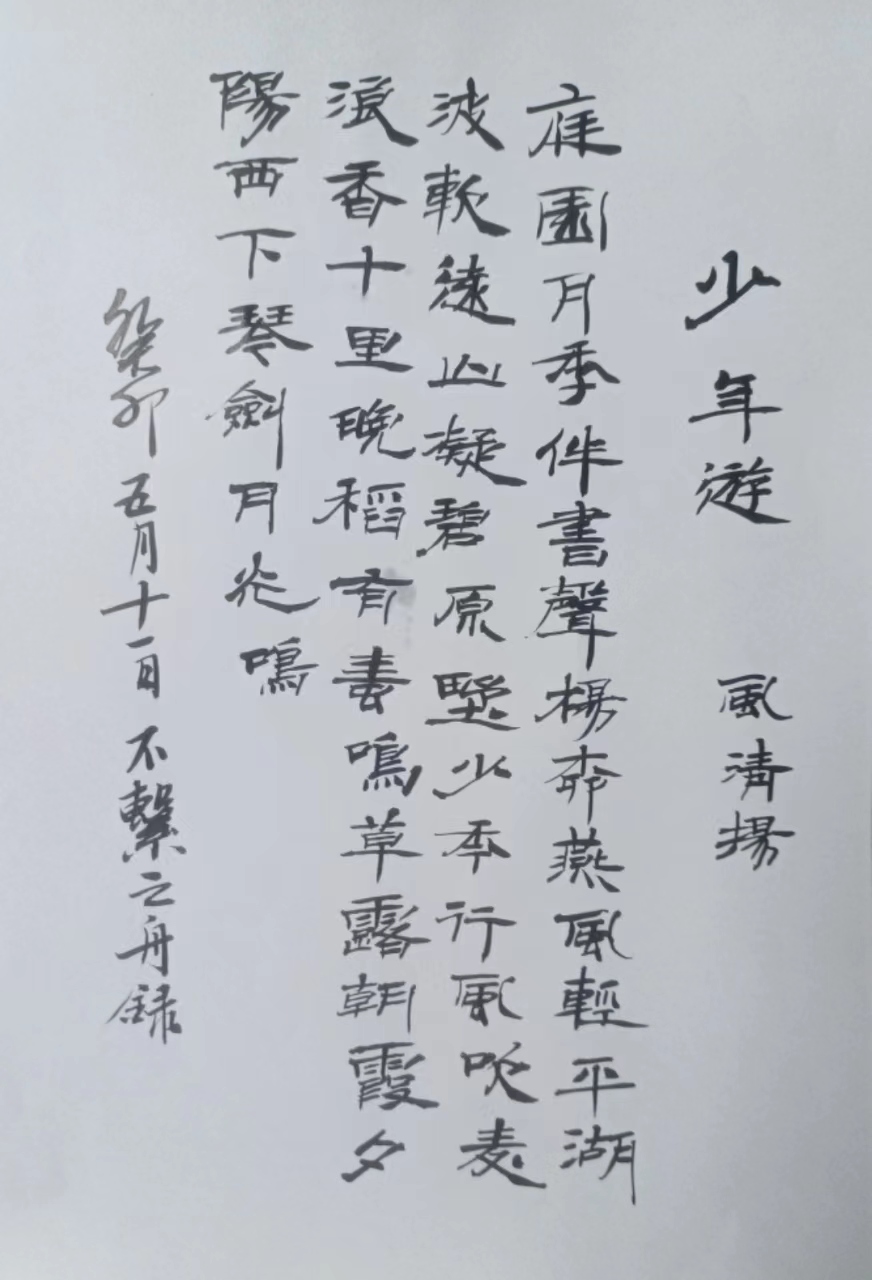 少年遊 風清揚
庭園月季伴書聲楊燕風輕平湖
波軟遠山凝碧原野少年行風吹麦
浪香十里晚稻有鳴草露朝霞夕
陽西下琴劍月光鳴
癸卯五月十一日不繫之舟録